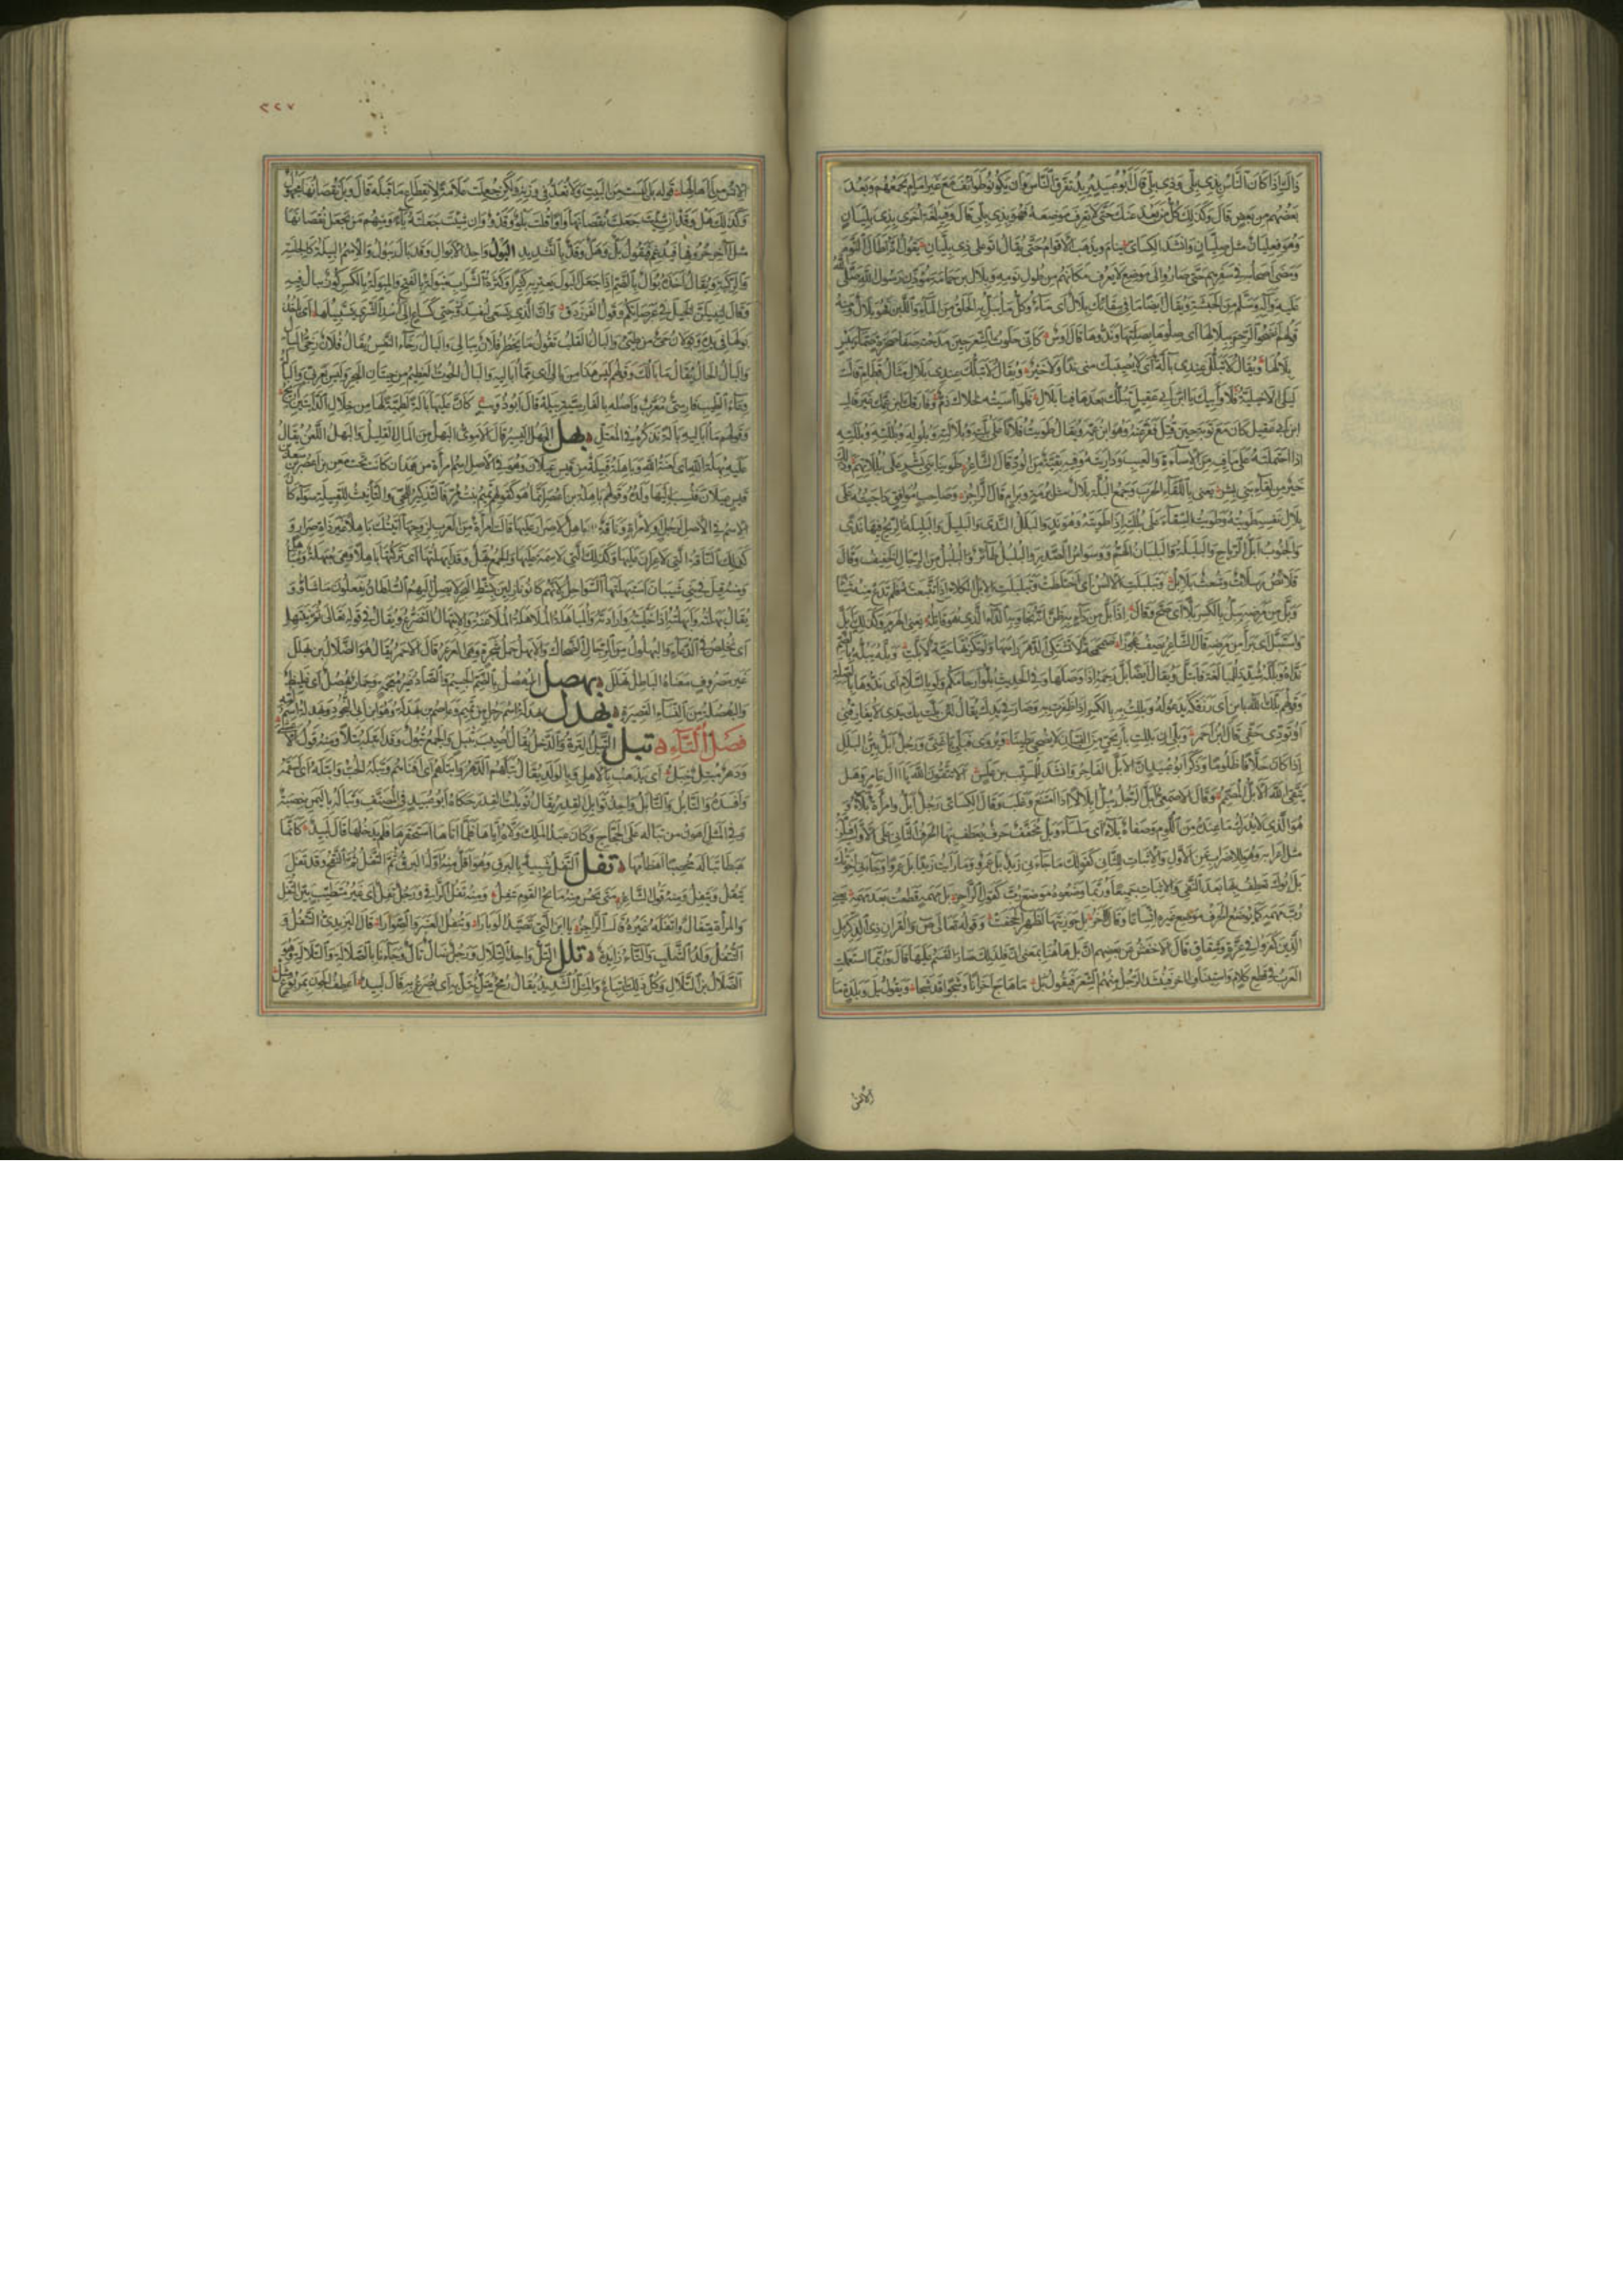 ذاك إذا كان الناس بذي بلي وذي بلى قال أبو عبيد يريد تفرق الناس وأن يكونوا طوائف مع غير إمام يجمعهم وبعد
بعضهم من بعض قال وكذلك كل من بعد عنك حتى لا تعرف موضعه فهو بذي بلى قال وفيه لغة أخرى بذي بليان
وهو فعليان مثل صليان وأنشد الكسائي ينام ويذهب الأقوام حتى يقال أتوا على ذي بليان يقول إنه أطال النوم
ومضى أصحابه في سفرهم حتى صاروا إلى موضع لا يعرف مكانهم من طول نومه وبلال بن حمامة مؤذن رسول الله صلى الله
عليه وآله وسلم من الحبشة ويقال أيضا ما في سقائك بلال أي ماء وكل ما يبل به الحلق من الماء واللبن فهو بلال ومنه
قولهم انضحوا الرحم ببلالها أي صلوها بصلتها وندوها قال أوس كأني حلوت الشعر حين مدحته صفا صخرة صماء يبس
بلالها ويقال لا تبلك عندي بالة أي لا يصيبك مني ندا ولا خير ويقال لا تبلك عندي بلال مثال قطام قالت
ليلى الأخيلية فلا وأبيك يا ابن أبي عقيل تبلك بعدها فينا بلال فلو آسيته لخلاك ذم وفارقك ابن عمك غير قال
ابن أبي عقيل كان مع توبة حين قتل ففر عنه وهو ابن عمه ويقال طويت فلانا على بلته وبلالته وبلوله وبللته وبللته
إذا احتملته على ما فيه من الإساءة والعيب وداريته وفيه بقية من الود قال الشاعر طوينا بني بشر على بللاتهم وذلك
خير من لقاء بني بشر يعني باللقاء الحرب وجمع البلة بلال مثل برمة وبرام قال الراجز وصاحب موافق داجيته على
بلال نفسه طويته وطويت السقاء على بللته إذا طويته وهو ند والبلل الندى والبليل والبليلة الريح فيها ندى
والجنوب أبل الرياح والبلبلة والبلبال الهم ووسواس الصدر والبلبل طائر والبلبل من الرجال الخفيف وقال
قلائص رسلات وشعث بلابل وتبلبلت الألسن أي اختلطت وتبلبلت الإبل الكلأ إذا تتبعته فلم تدع منه شيئا
وبل من مرضه يبل بالكسر بلا أي صح وقال إذا بل من داء به ظن أنه نجا وبه الداء الذي هو قاتله يعني الهرم وكذلك أبل
واستبل أي برأ من مرضه قال الشاعر يصف عجوزا صمحمحة لا تشتكي الدهر رأسها ولو نكزتها حية لأبلت وبله يبله بالضم
نداه وبلله شدد للمبالغة فابتل ويقال أيضا بل رحمه إذا وصلها وفي الحديث بلوا أرحامكم ولو بالسلام أي ندوها بالصلة
وقولهم بلك الله بابن أي رزقكه يدعو له وبللت به بالكسر إذا ظفرت به وصار في يدك يقال لئن بلت بك يدي لا تفارقني
أو تؤدي حقي قال ابن أحمر وبلي إن بللت بأريحي من الفتيان لا يضحي بطينا ويروى فبلي يا غني ورجل أبل بين البلل
إذا كان حلافا ظلوما وذكر أبو عبيد أن الأبل الفاجر وأنشد للمسيب بن علس ألا تتقون الله يا آل عامر وهل
يتقي الله الأبل المصمم وقال الأصمعي بل الرجل يبل إبلالا إذا امتنع وغلب وقال الكسائي رجل أبل وامرأة بلاء و
هو الذي لا يدرك ما عنده من اللؤم وصفاة بلاء أي ملساء وبل مخفف حرف يعطف بها الحرف الثاني على الأول فيلزمه
مثل إعرابه وهو للإضراب عن الأول والإثبات للثاني كقولك ما جاءني زيد بل عمرو وما رأيت زيدا بل عمرا وجاءني أخوك
بل أبوك تعطف بها بعد النفي والإثبات جميعا وربما وضعوه موضع رب كقول الراجز بل مهمه قطعت بعد مهمه يعني
رب مهمه كما يوضع الحرف موضع غيره اتساعا وقال آخر بل جوز تيهاء كظهر الجحفت وقوله تعالى ص والقرآن ذي الذكر بل
الذين كفروا في عزة وشقاق قال الأخفش عن بعضهم إن بل هاهنا بمعنى إن فلذلك صار القسم عليها قال وربما استعملت
العرب في قطع كلام واستئناف آخر فينشد الرجل منهم الشعر فيقول بل ما هاج أحزانا وشجوا قد شجا ويقول بل وبلدة ما
الإنس
٢٢٧
الإنس من آهالها قوله بل ليست من البيت ولا تعد في وزنه ولكن جعلت علامة لانقطاع ما قبله قال وبل نقصانها مجهول
وكذلك هل وقد إن شئت جعلت نقصانها واوا قلت بلو وقدو وإن شئت جعلته ياء ومنهم من يجعل نقصانها
مثل آخر حروفها فيدغم فيقول بل وهل وقد بالتشديد البول واحد الأبوال وقد بال يبول والاسم البيلة كالجلسة
والركبة ويقال أخذه بوال بالضم إذا جعل البول يعتريه كثيرا وكثرة الشراب مبولة بالفتح والمبولة بالكسر كوز يبال فيه
ويقال لنبيلن الخيل في عرصاتكم وقول الفرزدق وإن الذي يسعى ليفسد زوجتي كساع إلى أسد الشرى يستبيلها أي يأخذ
بولها في يده
والبال الحال يقال ما بالك وقولهم ليس هذا من بالي أي مما أباليه والبال الحوت العظيم من حيتان البحر وليس بعربي والبالة
وعاء الطيب فارسي معرب وأصله بالفارسية پيله قال أبو ذؤيب كأن عليها بالة لطمية لها من خلال الدأيتين أريج
وقولهم ما أباليه بالة نذكره في المعتل بهل البهل اليسير قال الأموي البهل من المال القليل والبهل اللعن يقال
عليه بهلة الله أي لعنة الله وباهلة قبيلة من قيس عيلان وهو في الأصل اسم امرأة من همدان كانت تحت معن بن أعصر بن سعد بن
قيس عيلان فنسب إليها ولده وقولهم باهلة بن أعصر إنما هو كقولهم تميم بنت مر فالتذكير للحي والتأنيث للقبيلة سواء كان
الاسم في الأصل لرجل أو لامرأة وناقة باهل لا صرار عليها قالت امرأة من العرب لزوجها أتيتك باهلا غير ذات صرار و
كذلك الناقة التي لا عران عليها وكذلك التي لا سمة عليها والجمع بهل وقد أبهلتها أي تركتها باهلا وهي مبهلة ومباهل
ومنه قيل في بني شيبان استبهلتها السواحل لأنهم كانوا نازلين بشط البحر لا يصل إليهم السلطان يفعلون ما شاؤوا و
يقال بهلته وأبهلته إذا خليته وإرادته والمباهلة الملاعنة والابتهال التضرع ويقال في قوله تعالى ثم نبتهل
أي نخلص في الدعاء والبهلول من الرجال الضحاك والأبهل حمل شجرة وهي العرعر قال الأحمر يقال هو الضلال بن بهلل
غير مصروف معناه الباطل مثل ثهلل بهصل البهصل بالضم الجسيم والصاد غير معجمة وحمار بهصل أي غليظ
والبهصلة من النساء القصيرة بهدل بهدلة اسم رجل من تميم وعاصم بن بهدلة وهو ابن أبي النجود وبهدلة اسم أمه
فصل التاء تبل التبل الترة والذحل يقال أصيب بتبل والجمع تبول وقد تبله يتبله تبلا ومنه قول الأعشى
ودهر متبل خبل أي يذهب بالأهل والولد يقال تبلهم الدهر وأتبلهم أي أفناهم وتبله الحب وأتبله أي أسقمه
وأفسده والتابل والتابل واحد توابل القدر يقال توبلت القدر حكاه أبو عبيد في المصنف وتبالة باليمن خصبة
وفي المثل أهون من تبالة على الحجاج وكان عبد الملك ولاه إياها فلما أتاها استحقرها فلم يدخلها قال لبيد كأنما
هبطا تبالة مخصبا أهضامها تفل التفل شبيه بالبزق وهو أقل منه أوله البزق ثم التفل ثم النفث ثم النفخ وقد تفل
يتفل ويتفل ومنه قول الشاعر متى يحس منه مائح القوم يتفل ومنه تفل الراقي ورجل تفل أي غير متطيب بين التفل
والمرأة متفال وأتفله غيره قال الراجز يا ابن التي تصيد الوبارا وتتفل العنبر والصوارا قال اليزيدي التتفل و
التتفل ولد الثعلب والتاء زائدة تلل التل واحد التلال ورجل ضال تال وجاءنا بالضلالة والتلالة وهو
الضلال بن التلال وكل ذلك إتباع والمتل الشديد يقال رمح متل يتل به أي يصرع به قال لبيد أعطف الجون بمربوع متل